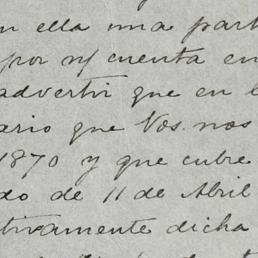 n ella una part
por n/ cuenta en
advertir que en l
ario que Vos. nos
1870 y que cubre
do de 11 de Abril
tivamente dicha